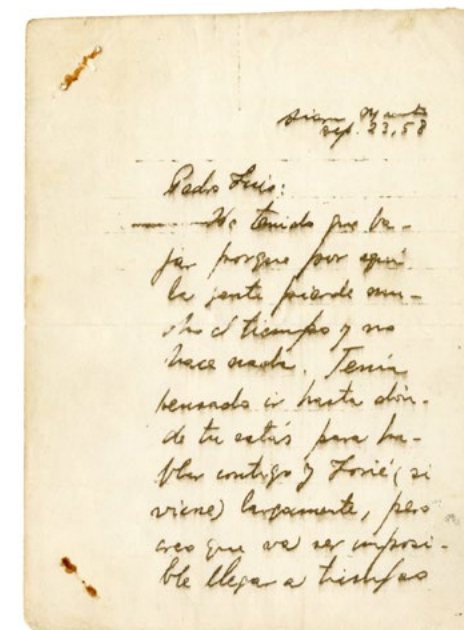 Sierra Maestra
sep. 23, 58
Pedro Luis:
He tenido que ba-
jar porque por aquí
la gente pierde mu-
cho el tiempo y no
hace nada. Tenía
pensado ir hasta dón-
de tu estás para ha-
blar contigo y José (si
viene) largamente, pero
creo que va ser imposi-
ble llegar a tiempo